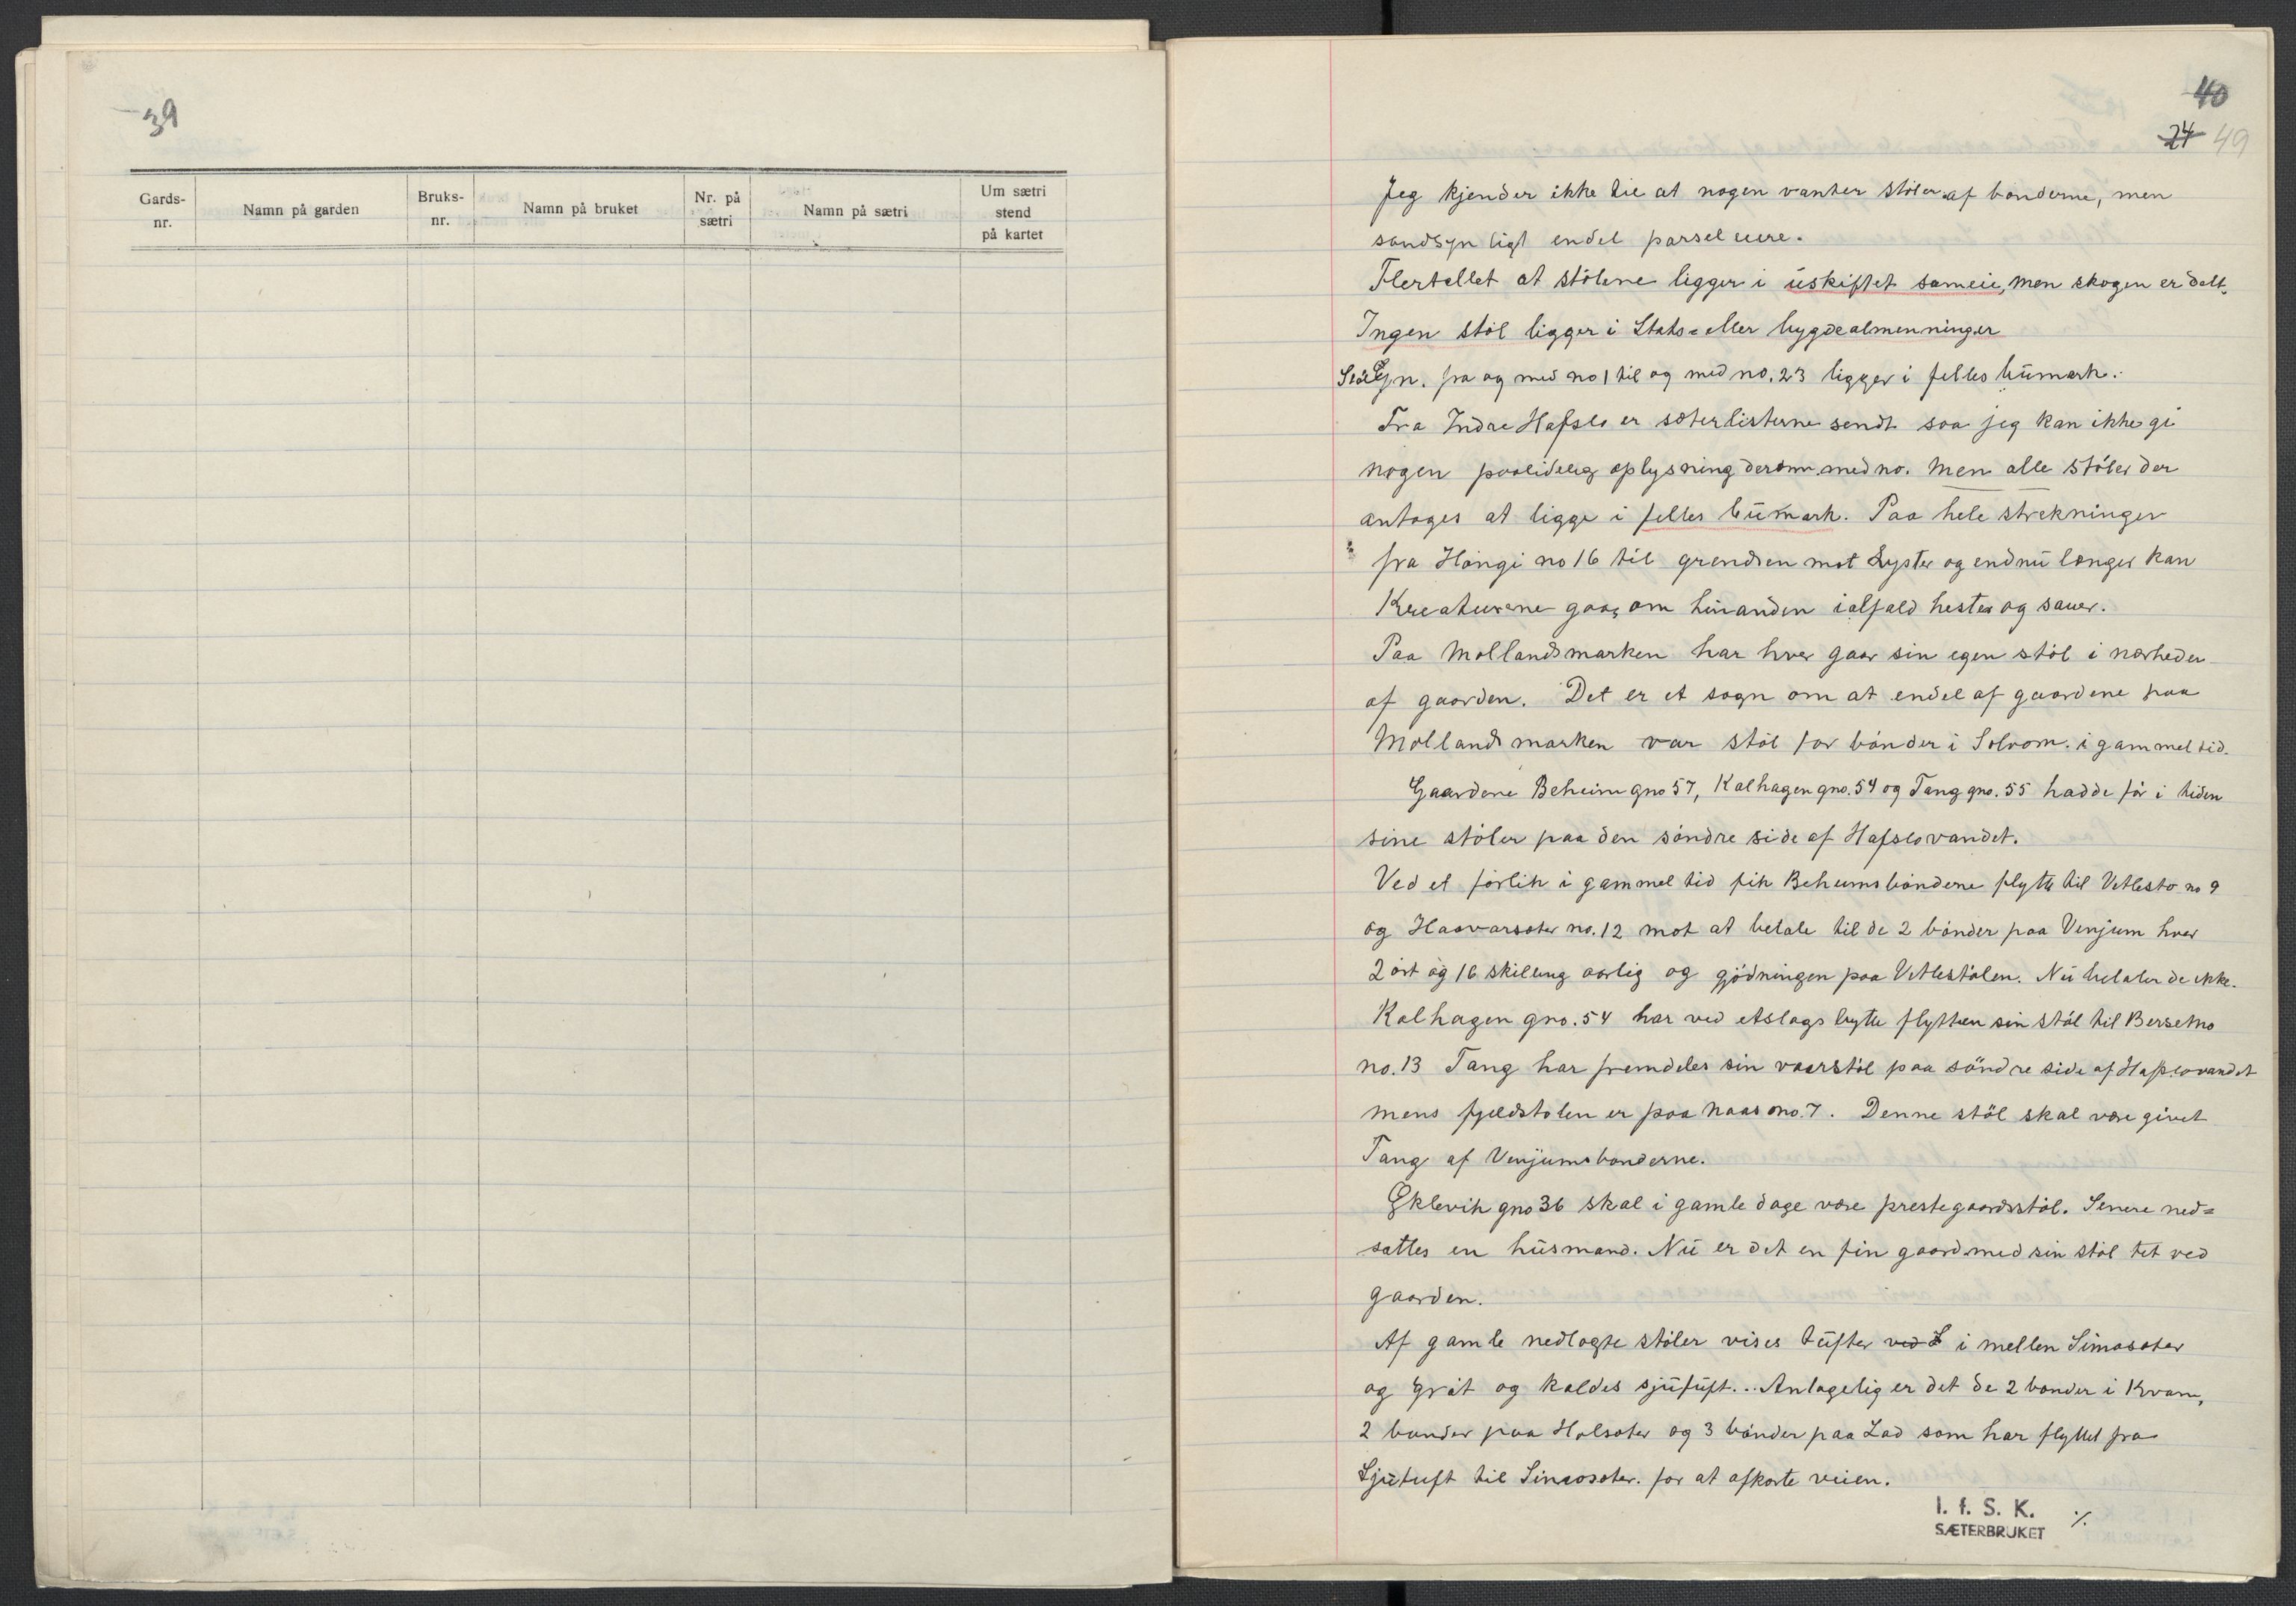 39
Gards-
nr.
Namn på garden
Bruks-
nr.
Namn på bruket
Nr. på
sætri
Namn på sætri
Um sætri
stend
på kartet
40
24 49
Jeg kjender ikke til at nogen vanter stöler af bönderne, men
sandsynligt endel parseleiere.
Flertellet at stölene ligger i uskiftet sameie, men skogen er delt.
Ingen stöl ligger i Stats= eller bygdealmenninger
fra og med no 1 til og med no. 23 ligger i felles bumark.
Fra Indre Hafslo er sæterlisterne sendt saa jeg kan ikke gi
nogen paalidelig oplysning derom med no. Men alle stöler der
antages at ligge i felles bumark. Paa hele strekninger
fra Höngi no 16 til grendsen mot Lyster og endnu længer kan
Kreaturene gaa om hinanden ialfald hester og sauer.
Paa Mollandsmarken har hver gaar sin egen stöl i nærheden
af gaarden. Det er et sagn om at endel af gaardene paa
Mollandsmarken var stöl for bönder i Solvorn i gammel tid.
Gaardene Beheim gno 57, Kalhagen gno. 54 og Tang gno. 55 hadde för i tiden
sine stöler paa den söndre side af Hafslovandet.
Ved et forlik i gammel tid fik Beheimsbönderne flytte til Vetlestö no 9
og Haavarsæter no. 12 mot at betale til de 2 bönder paa Venjum hver
2 ort og 16 skilling aarlig og gjödningen paa Vetlestölen. Nu betaler de ikke.
Kalhagen gno. 54 har ved etslags bytte flytten sin stöl til Bersetno
no. 13 Tang har fremdeles sin vaarstöl paa söndre side af Hafslovandet
mens fjeldstölen er paa Naase no. 7. Denne stöl skal være givet
Tang af Venjumsbönderne.
Eklevik gno 36 skal i gamle dage være prestegaardsstöl. Senere ned=
sattes en husmand. Nu er det en fin gaard med sin stöl tet ved
gaarden.
Af gamle nedlagte stöler vises tufter ved S i mellen Simasæter
og Gröt og kaldes sjutuft... Antagelig er det de 2 bönder i Kvam,
2 bönder paa Holsæter og 3 bönder paa Lad som har flyttet fra
Sjutuft til Simosæter for at afkorte veien.
I. f. S. K.
SÆTERBRUKET